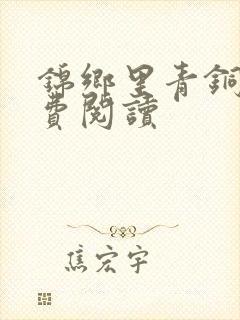 錦鄉里青銅
費閱讀
焦宏宇